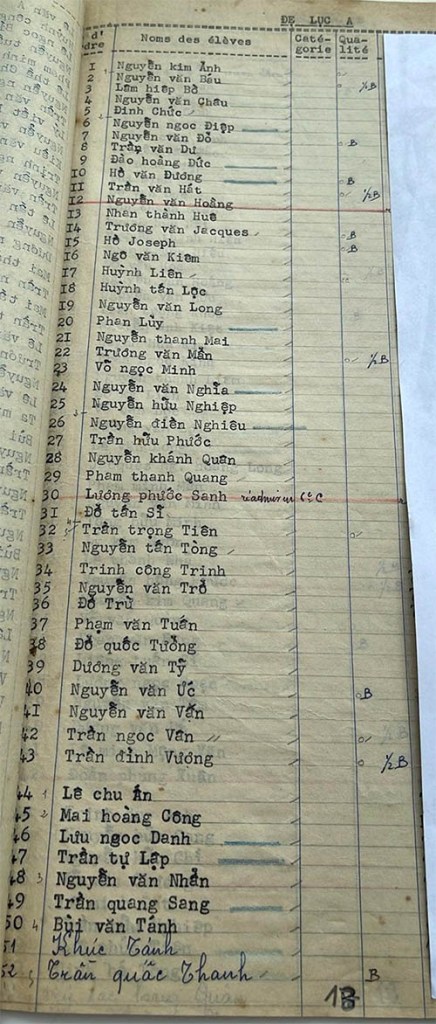 ĐỆ LỤC A
Noms des élèves Caté- Qua-
gorie lité
d'
dre
1 Nguyễn kim Ánh
2 Nguyễn văn Báu
3 Lâm hiệp Bở ½B
4 Nguyễn văn Châu
5 Đinh Chức
6 Nguyễn ngọc Điệp
7 Nguyễn văn Đỏ B
8 Trần văn Dư
9 Đào hoàng Đức
10 Hồ văn Đương B
11 Trần văn Hát ½B
12 Nguyễn văn Hoàng
13 Nhan thành Huê
14 Trương văn Jacques B
15 Hồ Joseph B
16 Ngô văn Kiêm
17 Huỳnh Liên
18 Huỳnh tấn Lộc
19 Nguyễn văn Long
20 Phan Lùy
21 Nguyễn thanh Mai
22 Trương văn Mẫn ½B
23 Võ ngọc Minh
24 Nguyễn văn Nghĩa
25 Nguyễn hữu Nghiệp
26 Nguyễn điền Nghiêu
27 Trần hữu Phước
28 Nguyễn khánh Quân
29 Pham thanh Quang
30 Lương phước Sanh réadmis en 6è C
31 Đỗ tấn Sĩ
32 Trần trọng Tiên
33 Nguyễn tấn Tòng
34 Trinh công Trinh
35 Nguyễn văn Trổ
36 Đỗ Trừ
37 Phạm văn Tuấn
38 Đỗ quốc Tưởng
39 Dương văn Tỷ
40 Nguyễn văn Ức B
41 Nguyễn văn Vận
42 Trần ngọc Vân
43 Trần đình Vượng ½B
44 1 Lê chu Ấn
45 2 Mai hoàng Công
46 Lưu ngọc Danh
47 Trần tự Lập
48 3 Nguyễn văn Nhẩn
49 Trần quang Sang
50 4 Bùi văn Tánh
51 Khúc Tánh
52 5 Trần quắc Thanh B
13